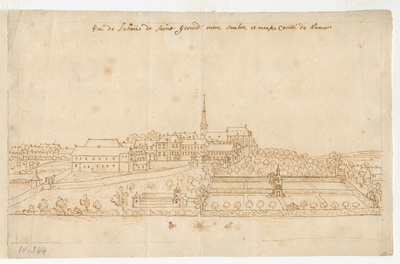 Veüe de Labaie de Saint Gerard entre Sambre et meuse Comté de Namur
IV.344